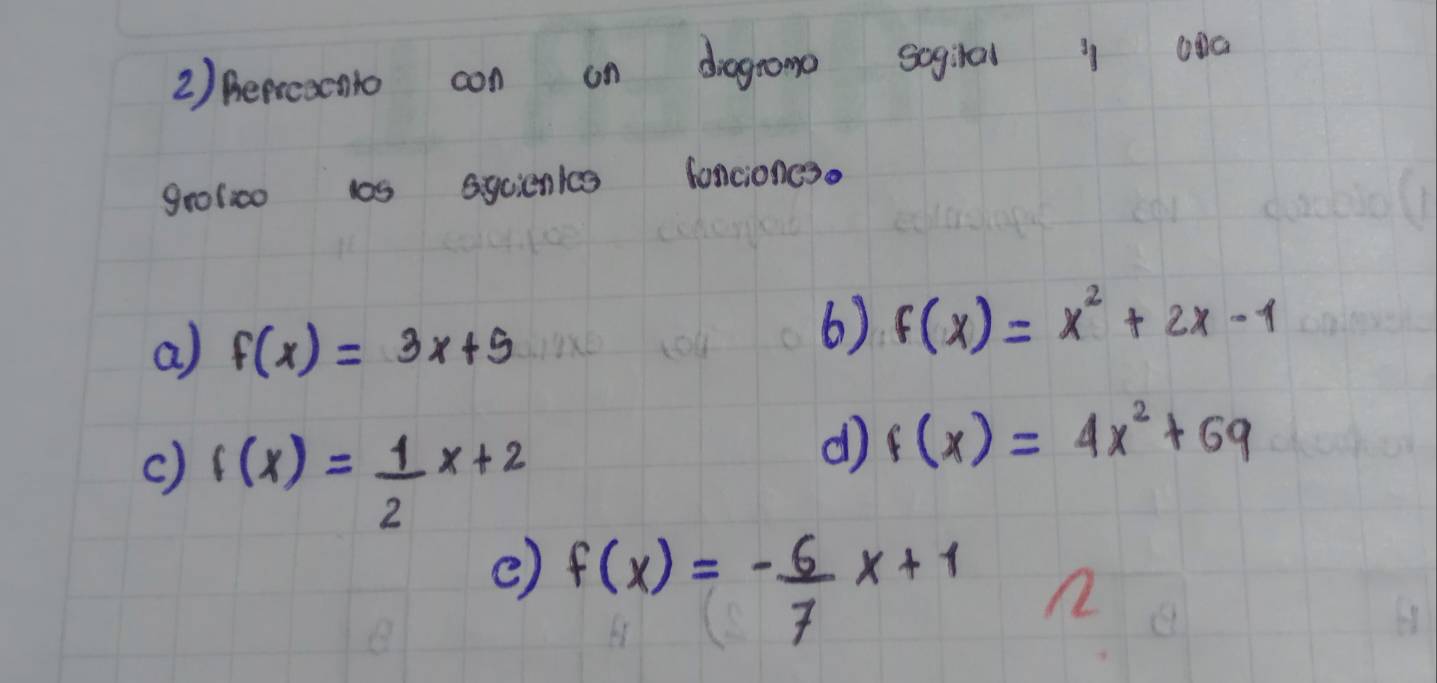 2) Represento con un diagrama sagital y una
grafica las siguientes funciones.
a) f(x) = 3x+5
b) f(x) = x² + 2x - 1
c) f(x) = 1/2 x + 2
d) f(x) = 4x² + 69
e) f(x) = - 6/7 x + 1